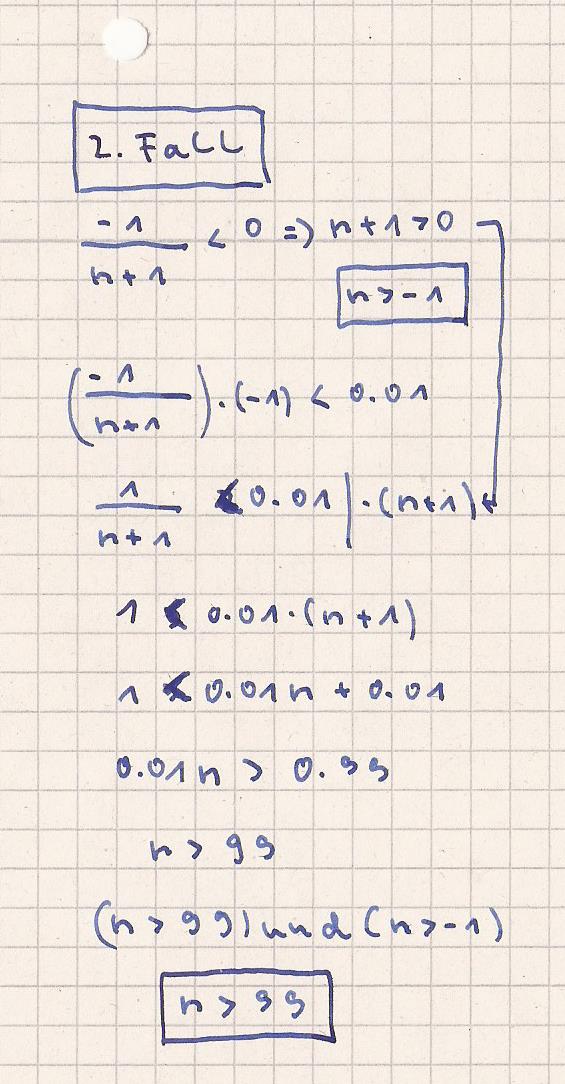 2. Fall
-1/(n+1) < 0 => n+1>0
n>-1
(-1/(n+1))·(-1) < 0.01
1/(n+1) < 0.01 | ·(n+1)
1 < 0.01·(n+1)
1 < 0.01n + 0.01
0.01n > 0.99
n > 99
(n > 99) und (n>-1)
n > 99